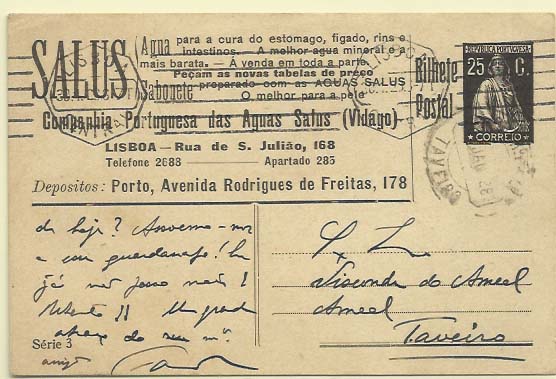 SALUS
Agua para a cura do estomago, figado, rins e
intestinos. A melhor agua mineral e a
mais barata. — Á venda em toda a parte.
Peçam as novas tabelas de preço
Sabonete preparado com as AGUAS SALUS
O melhor para a pele
Companhia Portuguesa das Aguas Salus (Vidago)
LISBOA — Rua de S. Julião, 168
Telefone 2688 — Apartado 285
Depositos: Porto, Avenida Rodrigues de Freitas, 178
Bilhete
Postal
REPUBLICA PORTUGUESA
25 C.
CORREIO
TAVEIRO
de hoje?
e um guardanapo!
já não posso mais!
Um grande
abraço do seu
amigo
Série 3
Visconde do Ameal
Ameal
Taveiro